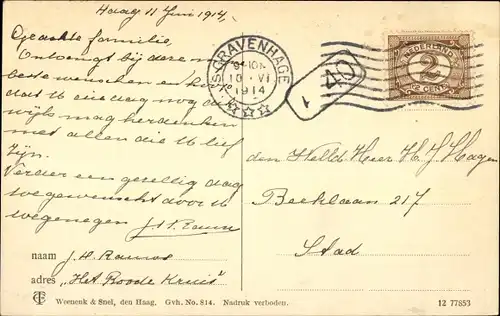 Haag 11 Juni 1914,
Geachte familie,
Ontvangt bij deze m
beste wenschen en hoop
dat U deze dag nog
wijls mag herdenken
met allen die U lief
zijn.
Verder een gezellig dag
toegewenscht door U
toegenegen
naam J. H. Ramos
adres "Het Roode Kruis"
TC Weenenk & Snel, den Haag. Gvh. No. 814. Nadruk verboden.
'S-GRAVENHAGE
10 VI
1914
40
1
NEDERLAND
2
CENT
den WelEd. Heer H J Hagen
Beeklaan 217
Stad
12 77853